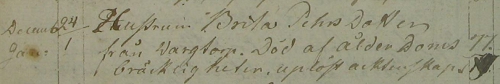 Decemb. 24 Hustrun Brita Pehrs Dotter
Jan: 1 från Vargtorp. Död af ålder Doms 77.
bräckligheter, uplöst äktenskap